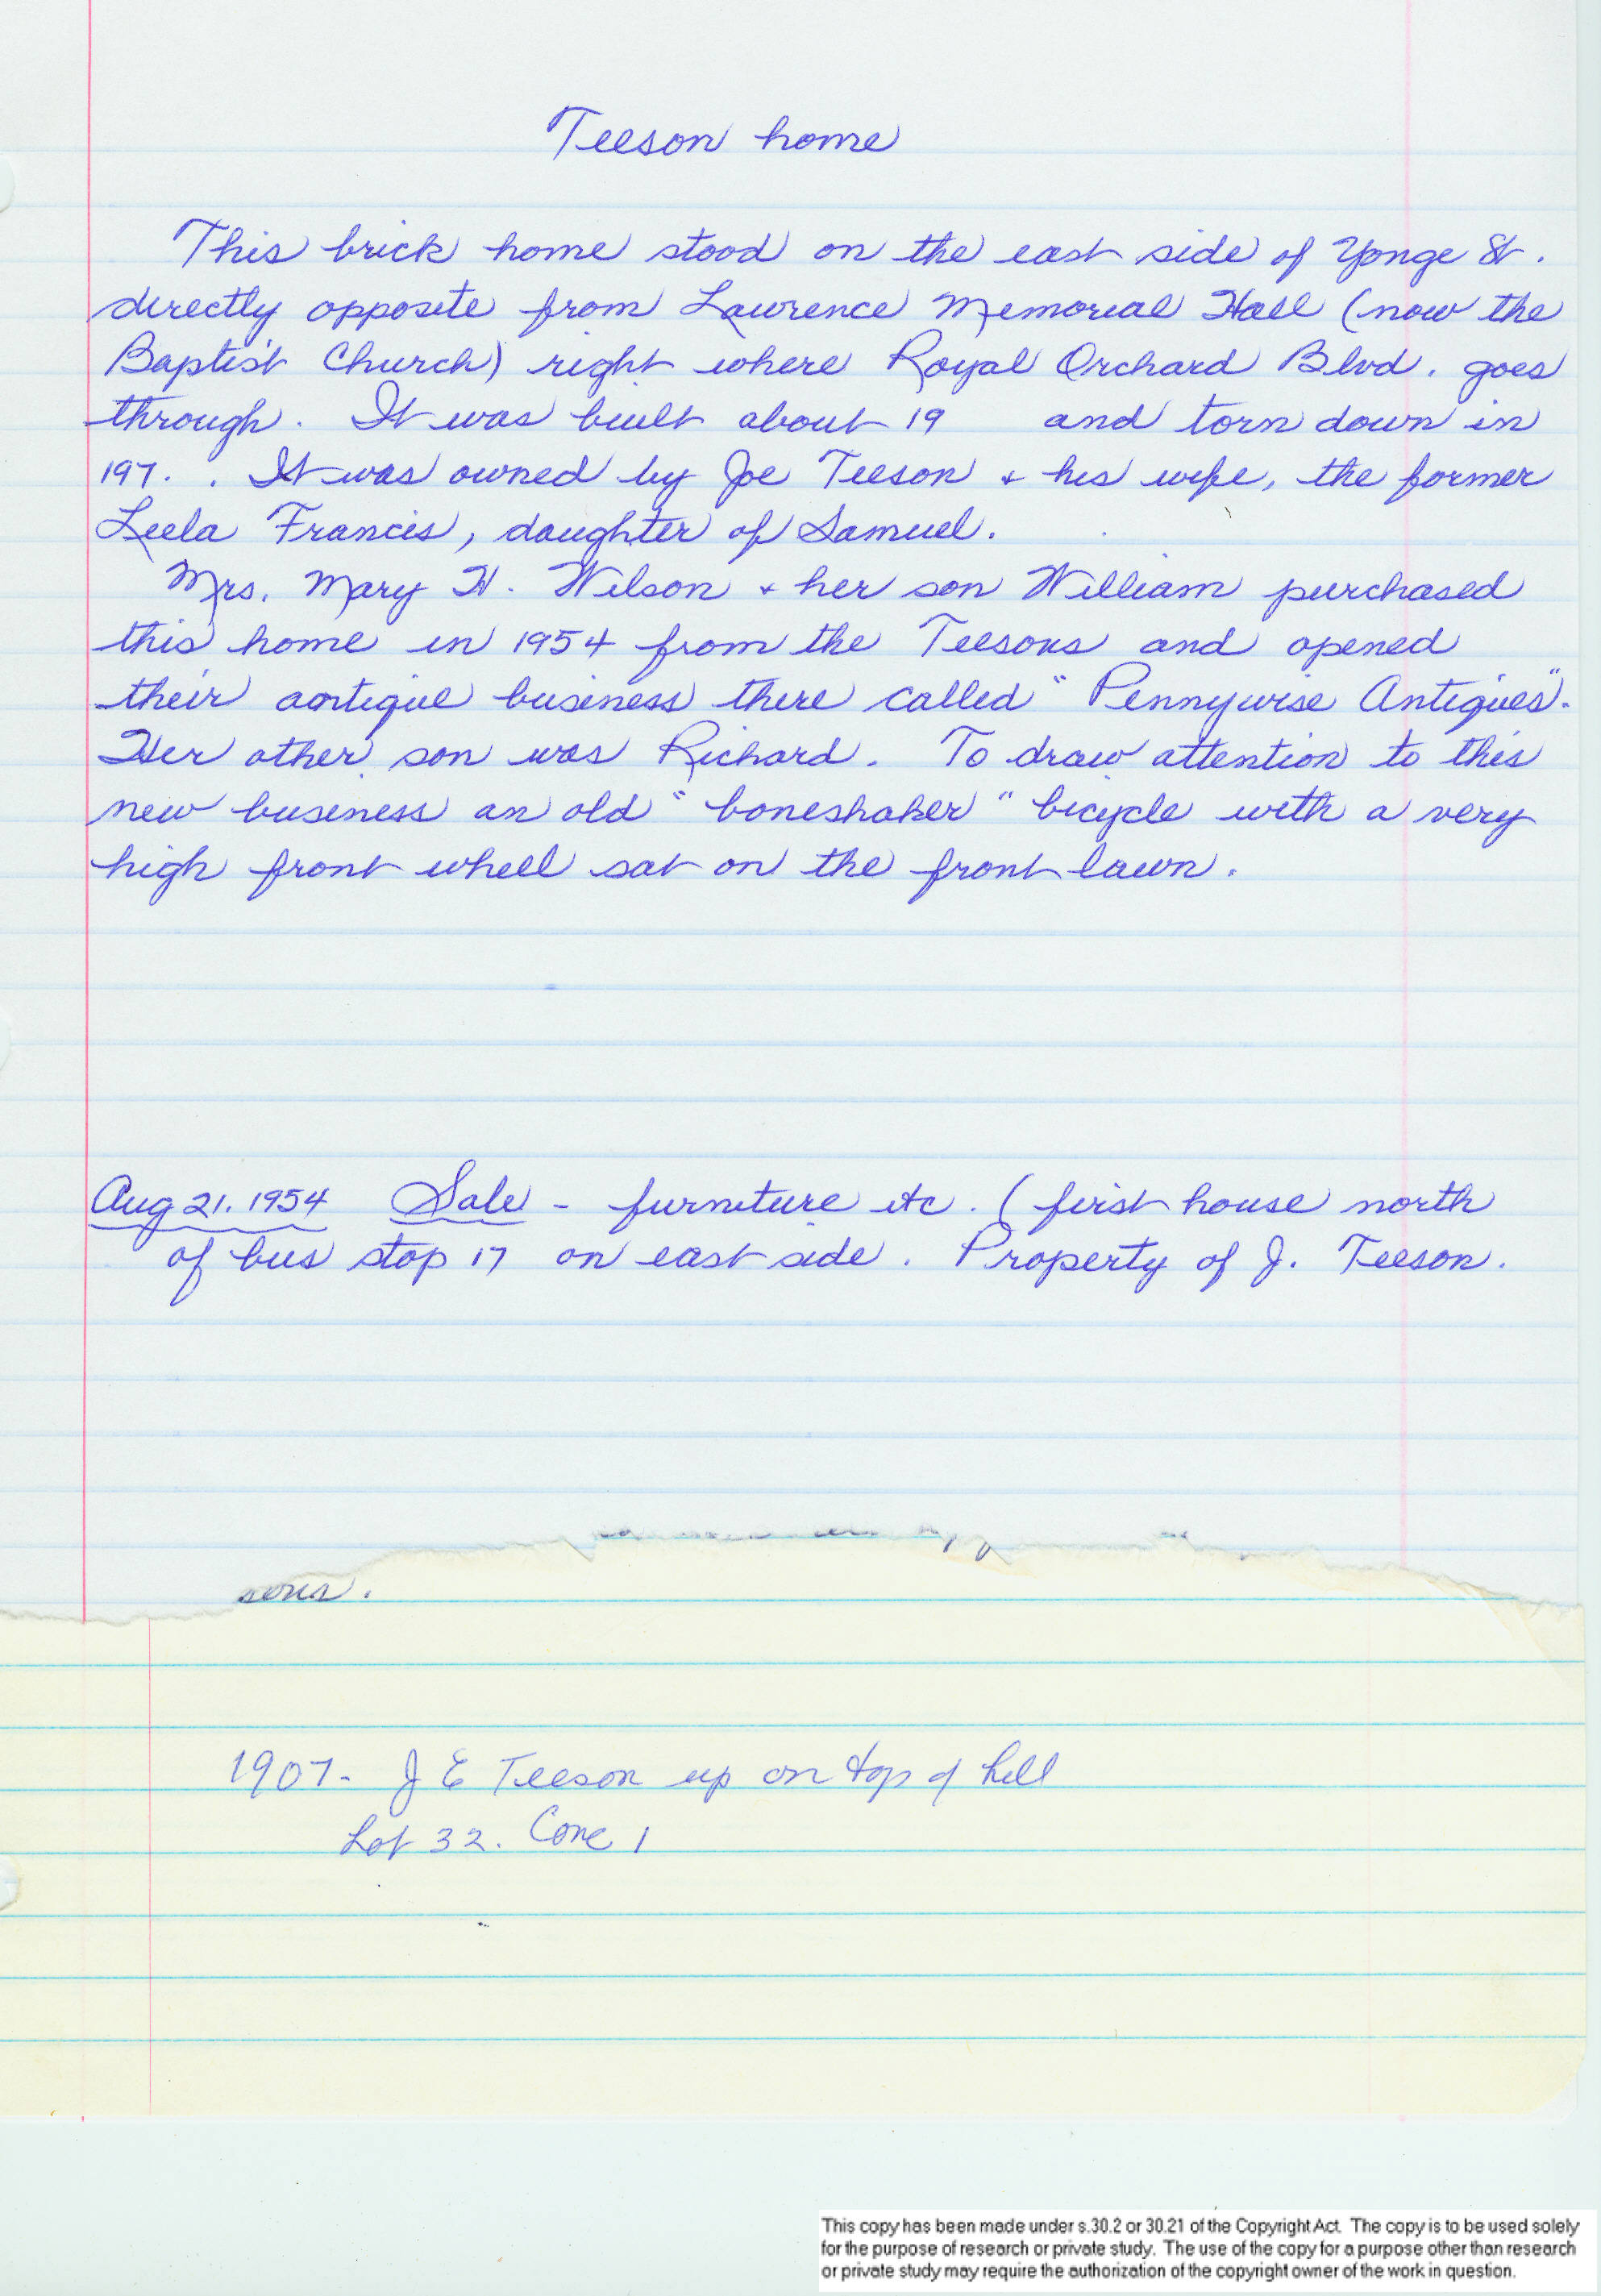 Teeson home
This brick home stood on the east side of Yonge St.
directly opposite from Lawrence Memorial Hall (now the
Baptist Church) right where Royal Orchard Blvd. goes
through. It was built about 19 and torn down in
197. . It was owned by Joe Teeson + his wife, the former
Leela Francis, daughter of Samuel.
Mrs. Mary H. Wilson + her son William purchased
this home in 1954 from the Teesons and opened
their antique business there called "Pennywise Antiques".
Her other son was Richard. To draw attention to this
new business an old "boneshaker" bicycle with a very
high front wheel sat on the front lawn.
Aug 21. 1954 Sale - furniture etc. (first house north
of bus stop 17 on east side. Property of J. Teeson.
sons.
1907- J E Teeson up on top of hill
Lot 32. Conc 1
This copy has been made under s.30.2 or 30.21 of the Copyright Act. The copy is to be used solely
for the purpose of research or private study. The use of the copy for a purpose other than research
or private study may require the authorization of the copyright owner of the work in question.